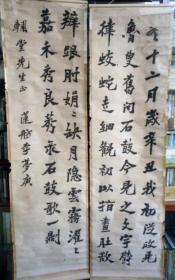 冬十二月歲辛丑我初從政見
魯叟舊聞石鼓今見之文字鬱
律蛟蛇走細觀初以指畫肚欲
辨跟肘娟〻缺月隱雲霧濯〻
嘉禾秀良莠录石鼓歌一則
輔堂先生正 蓮舫李夢庚